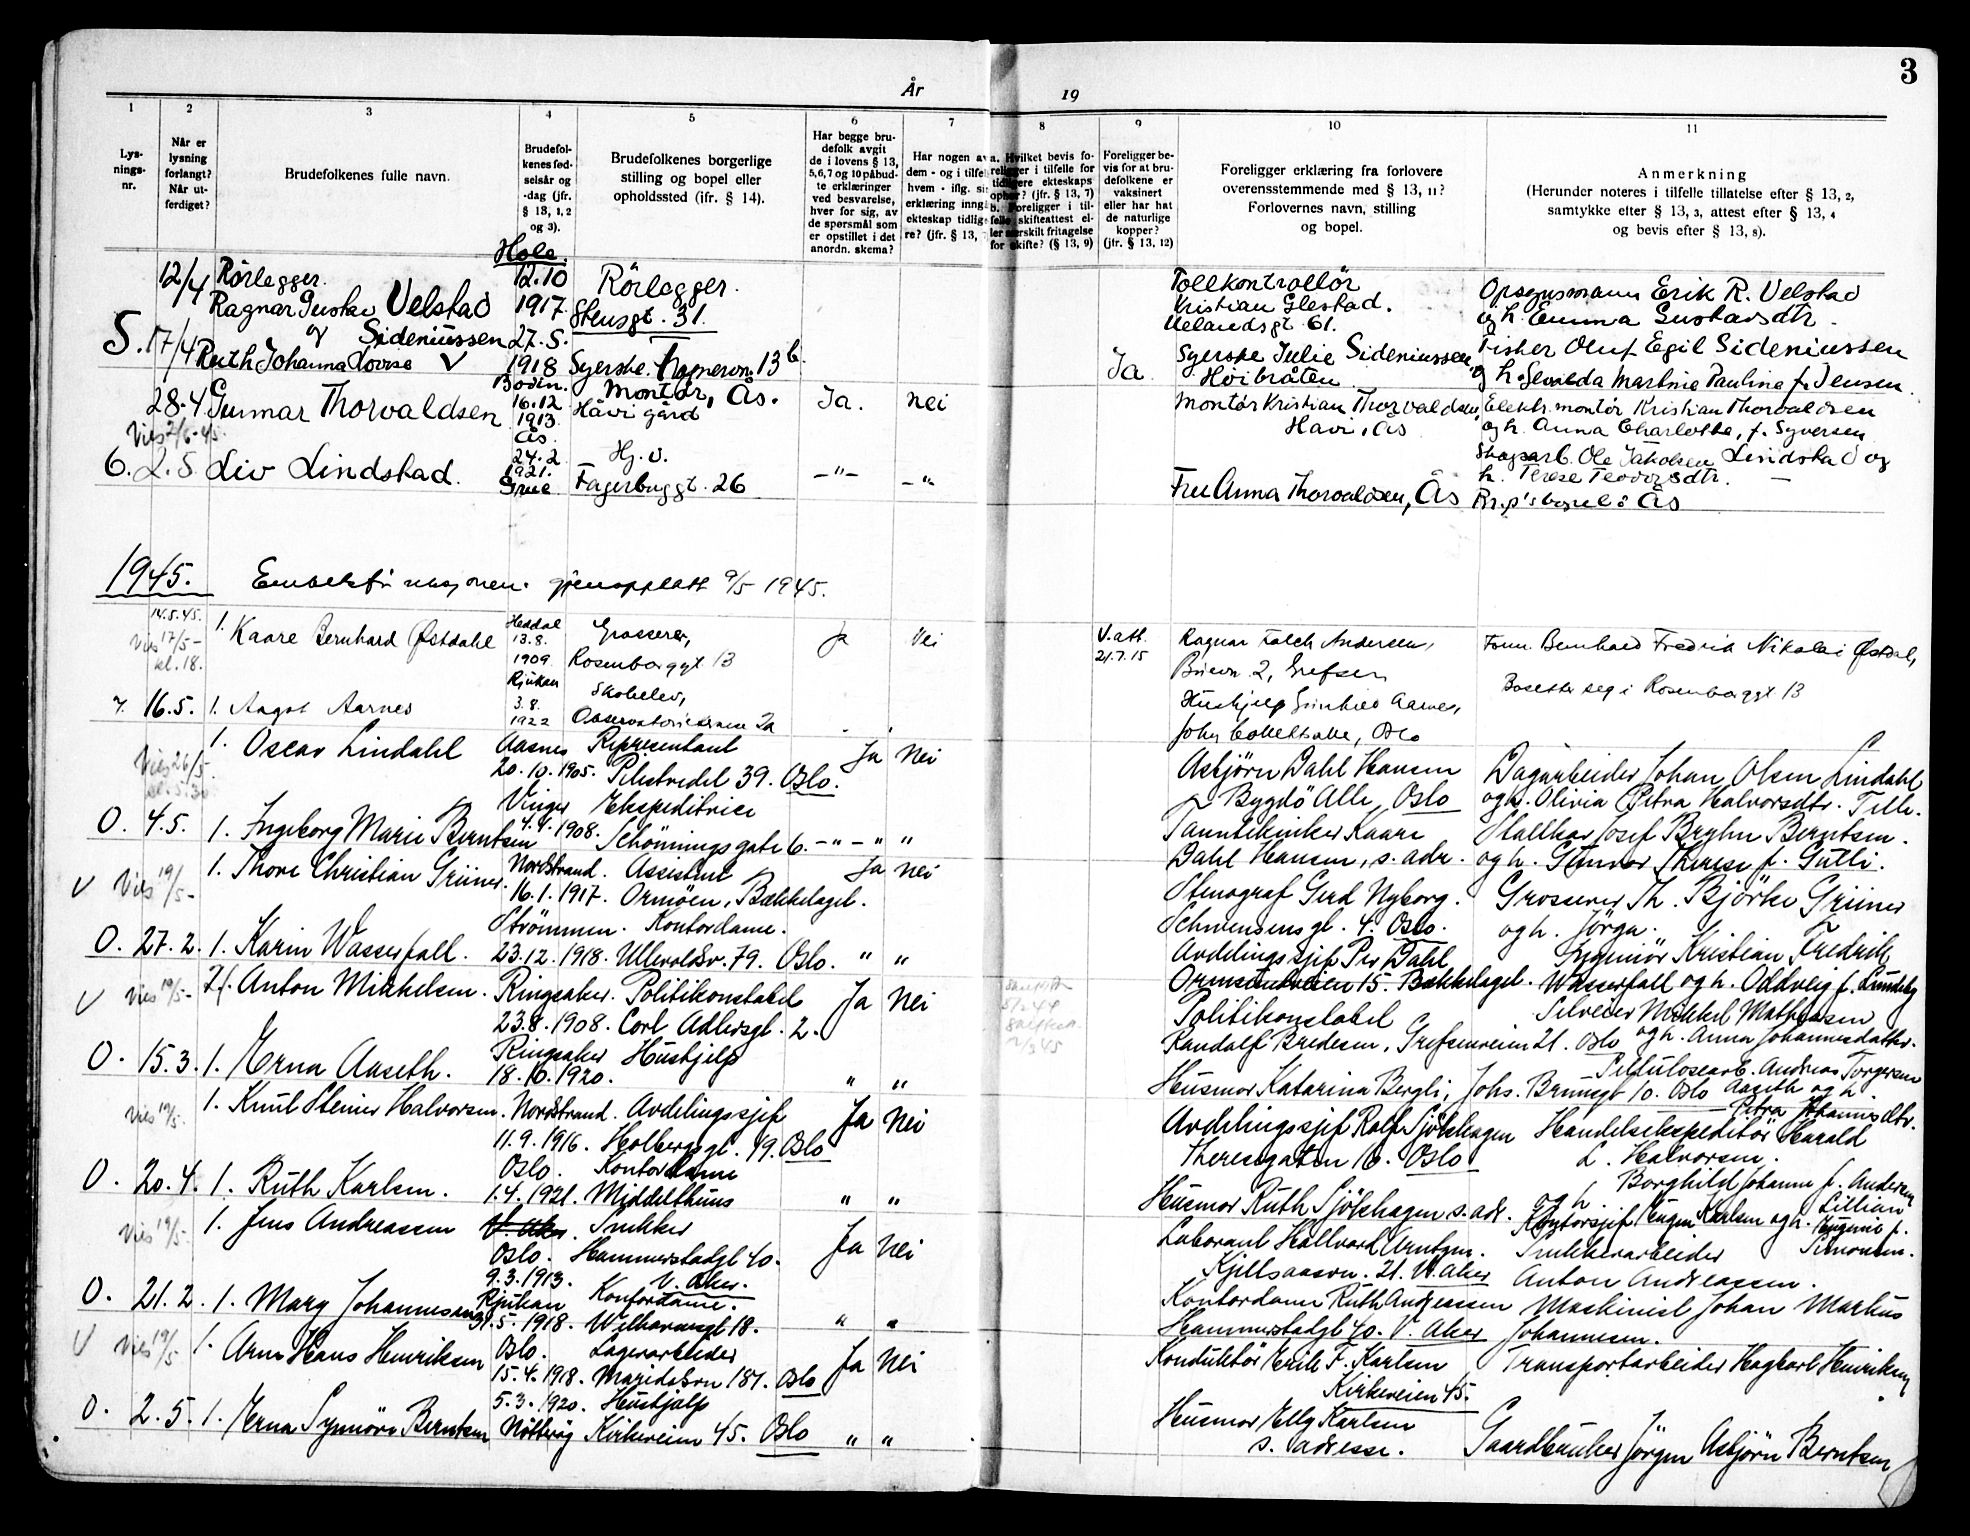 3
År 19
1 2 3 4 5 6 7 8 9 10 11
Lys-
nings-
nr.
Når er
lysning
forlangt?
Når ut-
ferdiget?
Brudefolkenes fulle navn.
Brudefol-
kenes fød-
selsår og
-dag (jfr.
§ 13, 1, 2
og 3).
Brudefolkenes borgerlige
stilling og bopel eller
opholdssted (ifr. § 14).
Har begge bru-
defolk avgit
de i lovens § 13,
5,6,7 og 10 påbud-
te erklæringer
ved besvarelse,
hver for sig, av
de spørsmål som
er opstillet i det
anordn. skema?
Har nogen av
dem - og i tilfel
hvem - iflg. si
erklæring inng
ekteskap tidlig
re? (jfr. § 13,
a. Hvilket bevis fo-
religger i tilfelle for
tidligere ekteskaps
ophør? (jfr. § 13, 7)
b. Foreligger i til-
felle skifteattest el-
ler særskilt fritagelse
for skifte? (§ 13, 9)
Foreligger be-
vis for at bru-
defolkene er
vaksinert
eller har hat
de naturlige
kopper?
(jfr. § 13, 12)
Foreligger erklæring fra forlovere
overensstemmende med § 13, 11?
Forlovernes navn, stilling
og bopel.
Anmerkning
(Herunder noteres i tilfelle tillatelse efter § 13, 2,
samtykke efter § 13, 3, attest efter § 13, 4
og bevis efter § 13, 8).
Hole.
12/4 Rörlegger. 12.10 Rörlegger. Tollkontrollör
Ragnar Gustav Velstad 1917 Stensgt. 31. Kristian Glestad. Erik R. Velstad
og Sideniussen 27.5. Uelandsgt. 61. og h. Emma Gustavsdtr.
S. 17/4 Ruth Johanna Lovise V 1918 Syerske. 13 b. Ja. Syerske Julie Sideniussen, Fisker Oluf Egil Sideniussen
Höibråten og h. Sevalda Martine Pauline f. Jensen.
Bodin.
28.4 Gunnar Thorvaldsen 16.12 1913 Ås. Montör, Ås. Hävi gård Ja. nei Montör Kristian Thorvaldsen, Elektr. montör Kristian Thorvaldsen
Viet 2/6-45. Havi, Ås og h. Anna Charlotte, f. Syversen
6. 2.5. Liv Lindstad. 24.2 1921. Grue Hj. v. Fagerbuggt. 26 -"- -" Fru Anna Thorvaldsen, Ås Skogsarb. Ole Jakobsen Lindstad og
h. Terese Teodorsdtr.
Br.p's bopel: Ås
1945. gjenopptatt 9/5 1945.
14.5.45.
Viet 17/5- kl. 18. 1. Kaare Bernhard Østdahl Heddal 13.8. 1909. Grosserer, Rosenborggt 13 Ja Nei V.att. 21.7.15 Ragnar Falch Andersen, Form. Bernhard Fredrik Nikolai Østdal,
2, Grefsen Bosetter seg i Rosenborggt 13
7. 16.5. 1. Aagot Aarnes Rjukan 3.8. 1922 Hushjelp Gunhild Aarnes,
Oslo
Viet 26/5. 1. Oscar Lindahl Aasnes 20.10.1905. Representant Pilestredet 39. Oslo. Ja Nei Asbjörn Dahl Hansen Dagarbeider Johan Olsen Lindahl
Bygdö Allé, Oslo og h. Olivia Petra Halvorsdtr.
O. 4.5. 1. Ingeborg Marie Berntsen Vinger 4.4.1908. Ekspeditrice Schönningsgate 6. -"- "" Tanntekniker Kaare Stallkar Josef Bryhn Berntsen.
Dahl Hansen, s. adr. og h. Gunvor Therese f. Gutli.
V Viet 19/5- 1. Thore Christian Grüner. Nordstrand. 16.1.1917. Assistent Ormöen, Bækkelaget. Ja Nei Stenograf Gerd Nyborg. Grosserer Th. Bjørke Grüner
Schwensensgt. 4. Oslo. og h. Jörga. F.
O. 27.2. 1. Karin Wasserfall. Strömmen. 23.12.1918. Kontordame. Ullevoldsv. 79. Oslo. " " Avdelingssjef Per Dahl Ingeniör Kristian Fredrik
Ormsundveien 15. Bækkelaget. Wasserfall og h. Oddveig f. Lundeby
V Viet 19/5- 2. Anton Mikkelsen. Ringsaker. 23.8.1908. Politikonstabel Carl Adlersgt. 2. Ja Nei 5/2 44 Politikonstabel Mikkel Mathiasen
Randolf Bredesen, Grefsenveien 21. Oslo og h. Anna Johannesdatter.
O. 15.3. 1. Erna Aaseth. Ringsaker 18.10.1920. Hushjelp " " Husmor Katarina Bergli, Johs. Brunsgt 10. Oslo Andreas Torgersen
Aaseth og h. Petra Johannesdtr.
Viet 19/5. 1. Knut Steiner Halvorsen. Nordstrand. 11.9.1916. Avdelingssjef Holbergsgt. 19. Oslo Ja Nei Avdelingssjef Rolf Sjölshagen Handelsekspeditör Harald
Theresegaten 16. Oslo L. Halvorsen.
O. 20.4. 1. Ruth Karlsen. Oslo. 1.4.1921. Kontordame Middelthuns " " Husmor Ruth Sjölshagen s. adr. og h. Borghild Johanne f. Andersen
Kontorsjef Eugen Karlsen og h. Eugenie Lillian f. Simonsen.
Viet 19/5. 1. Jens Andreassen Oslo. 9.3.1913. Snekker Hammerstadgt 40. V. Aker. Ja Nei Laborant Hallvard Arntzen. Snekkerarbeider
Kjelsaasvn. 21. V. Aker Anton Andreassen.
O. 21.2. 1. Mary Johannesen Rjukan 31.5.1918. Kontordame. Wilhelmsgt 18. " " Kontordame Ruth Andreassen Maskinist Johan Markus
Hammerstadgt 40. V. Aker Johannesen.
V Viet 19/5 1. Arne Hans Henriksen Oslo. 15.4.1918. Lagerarbeider Maridalsvn 187. Oslo Ja Nei Konduktör Erik F. Karlsen Transportarbeider Hagbart Henriksen
Kirkeveien 45.
O. 2.5. 1. Erna Synnöve Berntsen 5.3.1920. Nötteröy Hushjelp Kirkeveien 45. Oslo " " Husmor Elly Karlsen Gaardbruker Jörgen Asbjörn Berntsen
s. adresse.